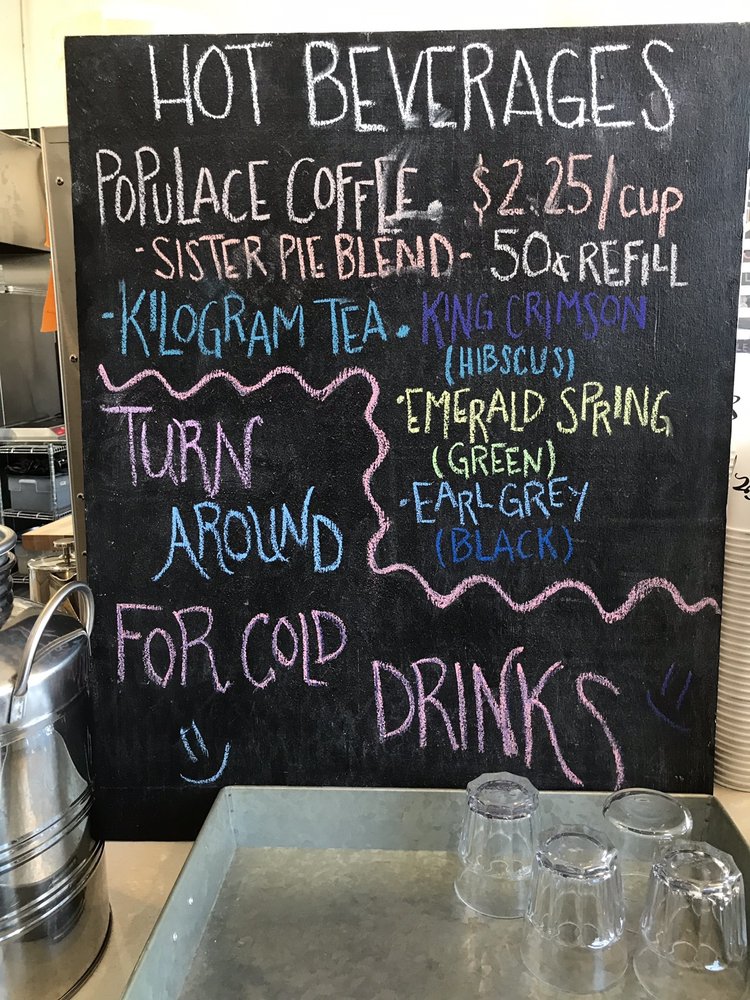 HOT BEVERAGES
POPULACE COFFEE. $2.25/cup
-SISTER PIE BLEND- 50¢ REFILL
-KILOGRAM TEA. KING CRIMSON
(HIBSCUS)
·EMERALD SPRING
(GREEN)
·EARL GREY
(BLACK)
TURN
AROUND
FOR COLD
DRINKS